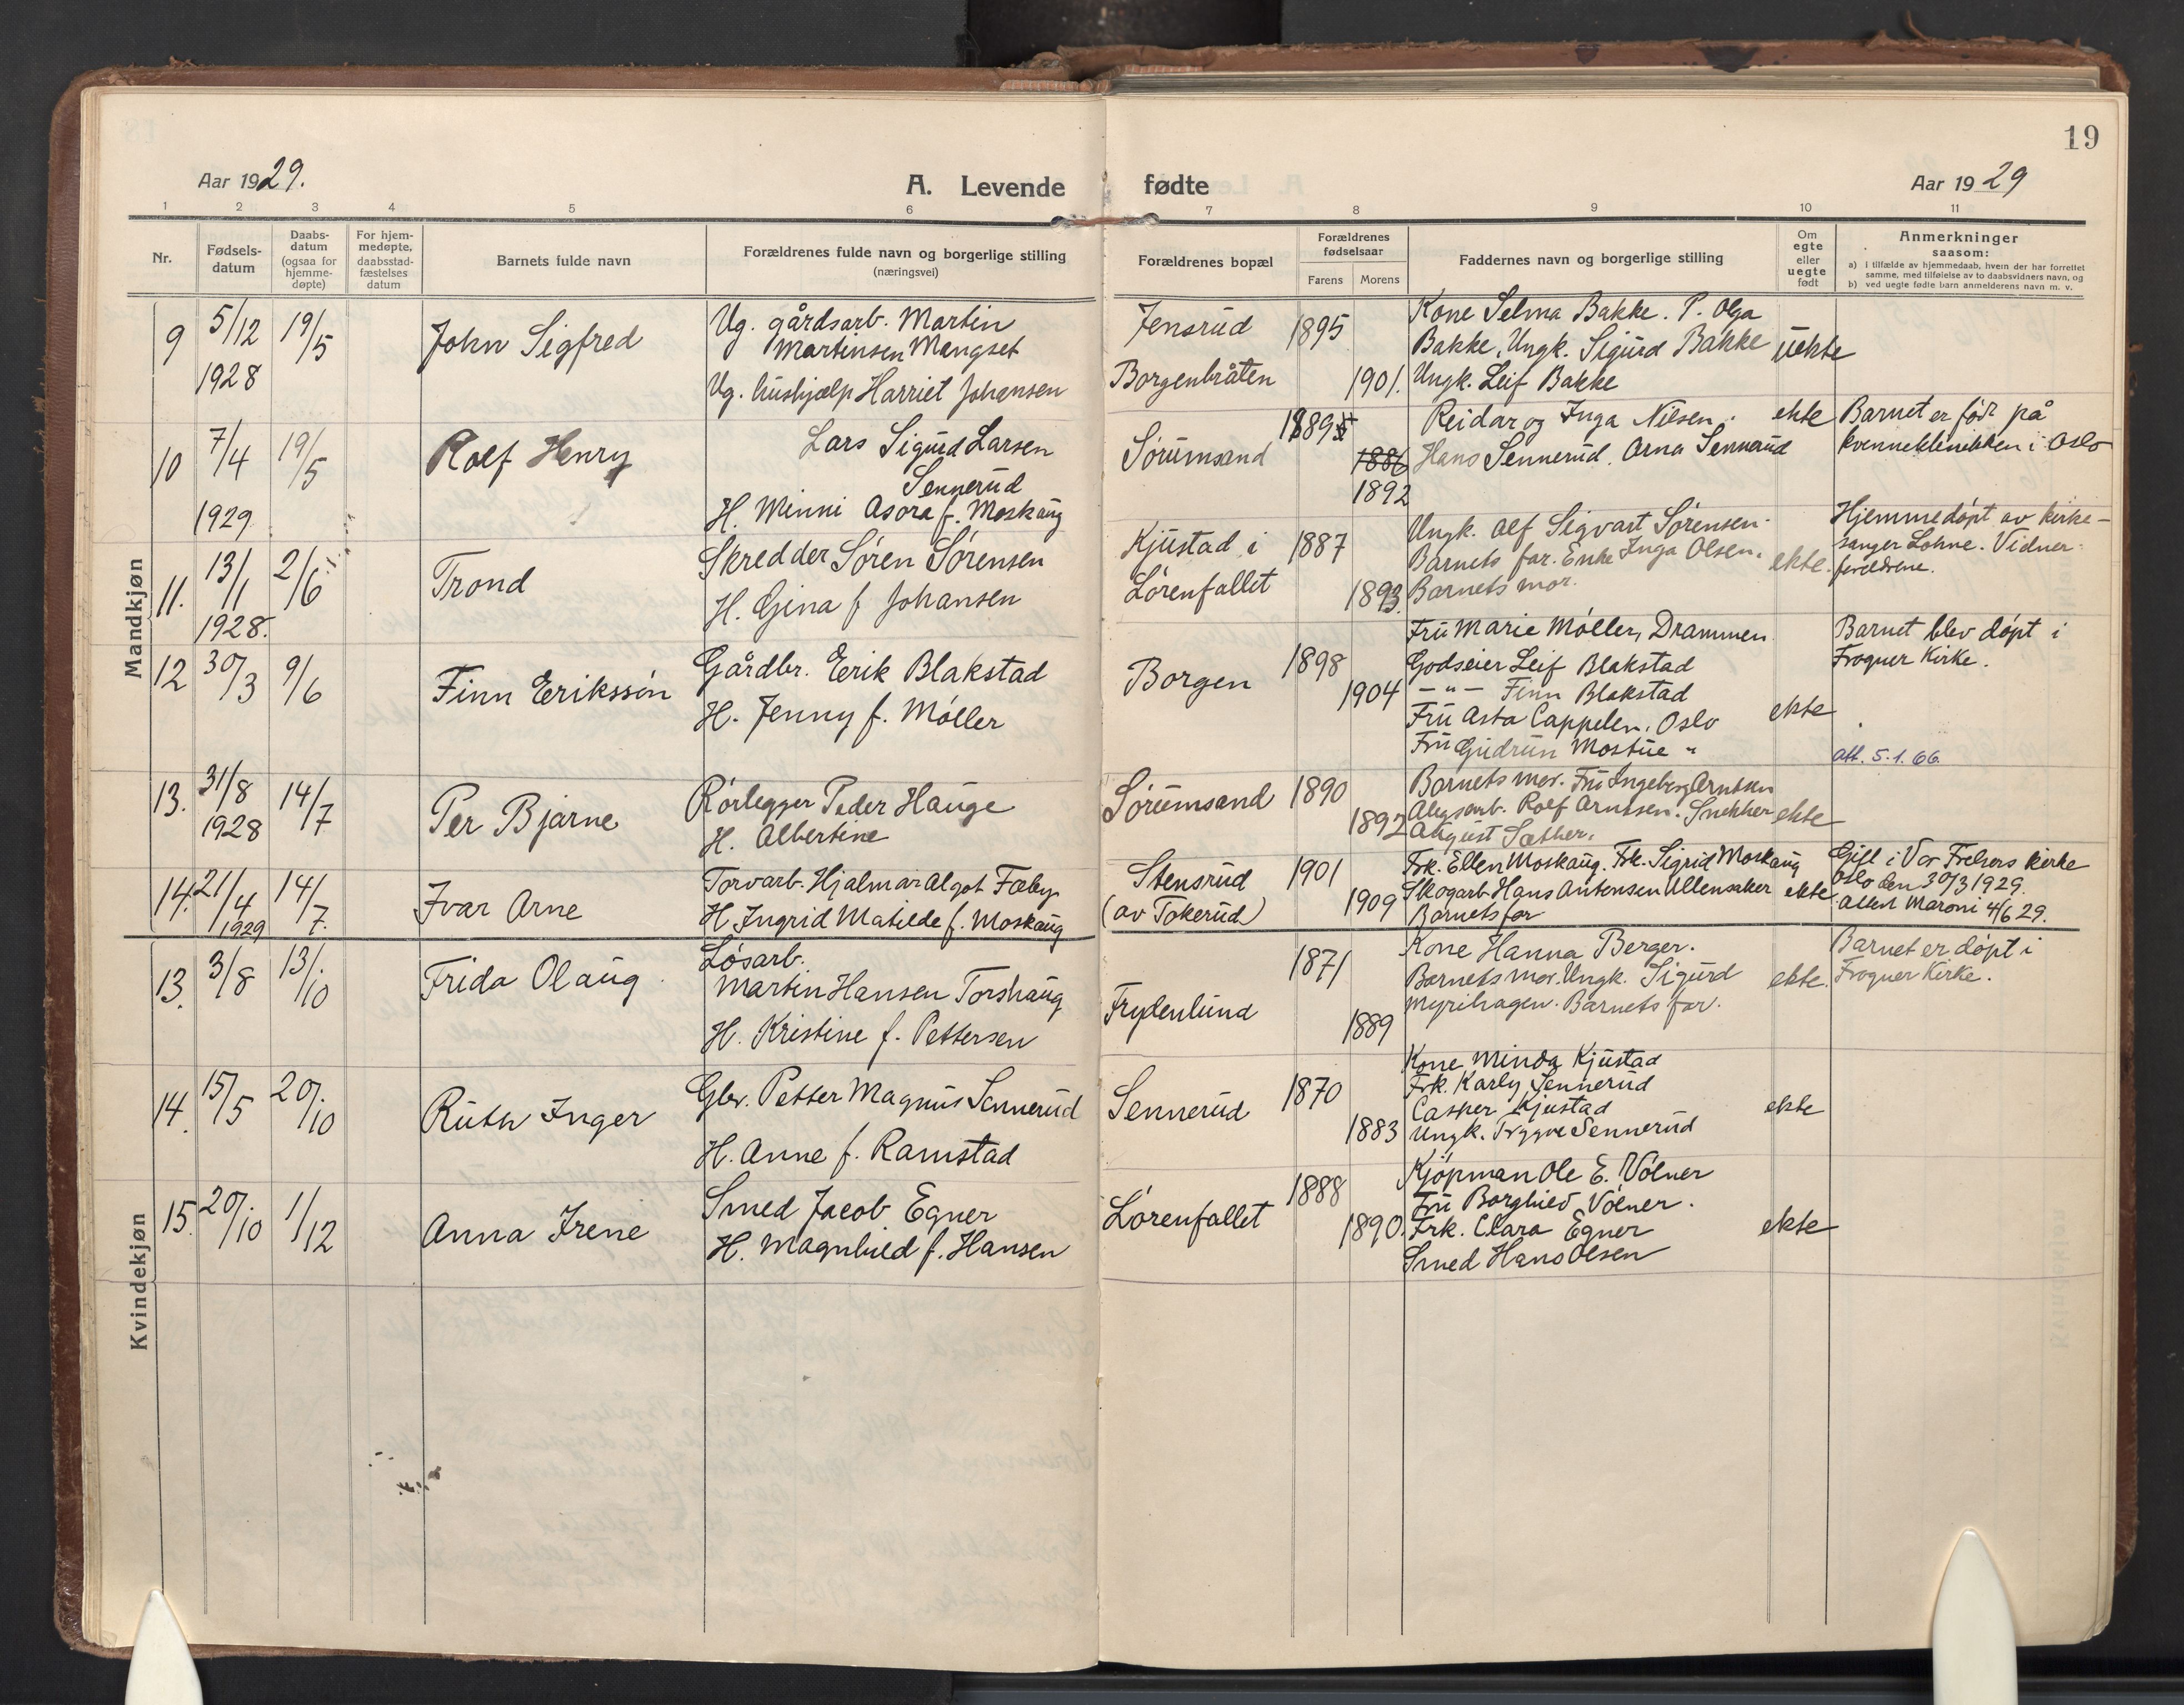 19
Aar 1929.
A. Levende fødte
Aar 1929
1 2 3 4 5 6 7 8 9 10 11
Nr.
Fødsels-
datum
Daabs-
datum
(ogsaa for
hjemme-
døpte)
For hjem-
medøpte,
daabsstad-
fæstelses
datum
Barnets fulde navn
Forældrenes fulde navn og borgerlige stilling
(næringsvei)
Forældrenes bopæl
Forældrenes
fødselsaar
Farens Morens
Faddernes navn og borgerlige stilling
Om
egte
eller
uegte
født
Anmerkninger
saasom:
a) i tilfælde av hjemmedaab, hvem der har forrettet
samme, med tilføielse av to daabsvidners navn, og
b) ved uegte fødte barn anmelderens navn m. v.
Mandkjøn
9
5/12
1928
19/5
John Sigfred
Ug. gårdsarb. Martin
Martinsen Mangset
Ug. hushjælp Harriet Johansen
Jensrud
Borgenbråten
1895
1901.
Kone Selma Bakke. P. Olga
Bakke, Ungk. Sigurd Bakke
Ungk. Leif Bakke
uekte
10
7/4
1929
19/5
Rolf Henry
Lars Sigurd Larsen
Sennerud
H. Minni Asora f. Moskaug
Sørumsand
1895
1886
1892
Reidar og Inga Nilsen.
Hans Sennerud. Arna Sennerud
ekte
Barnet er født på
kvinneklinikken i Oslo
11.
13/1
1928.
2/6
Trond
Skredder Søren Sørensen
H. Gina f Johansen
Kjustad i
Lørenfallet
1887
1893.
Ungk. Alf Sigvart Sørensen.
Barnets far. Enke Inga Olsen.
Barnets mor.
ekte.
Hjemmedøpt av kirke-
sanger Lohne. Vidner:
foreldrene.
12
30/3
9/6
Finn Erikssøn
Gårdbr. Eerik Blakstad
H. Jenny f. Møller
Borgen
1898
1904
Fru Marie Møller, Drammen
Godseier Leif Blakstad
- " - Finn Blakstad
Fru Asta Cappelen. Oslo
Fru Gudrun Mostue "
ekte
Barnet blev døpt i
Frogner Kirke.
att. 5.1.66.
13.
31/8
1928
14/7
Per Bjarne
Rørlegger Peder Hauge
H. Albertine
Sørumsand
1890
1892
Barnets mor. Fru Ingeborg Arntsen
Rolf Arntsen. Snekker
August Sæther.
ekte
14.
21/4
1929
14/7.
Ivar Arne
Torvarb. Hjalmar Algot Fæby
H Ingrid Matilde f. Moskaug
Stensrud
(av Tokerud)
1901
1909
Frk. Ellen Moskaug. Frk. Sigrid Moskaug
Skogarb Hans Antonsen Ullensaker
Barnets far
ekte
Gift i Vor Frelsers kirke
Oslo den 30/3 1929.
Attest Maroni 4/6 29.
Kvindekjøn
13.
3/8
13/10
Frida Olaug
Løsarb.
Martin Hansen Torshaug
H. Kristine f. Pettersen
Frydenlund
1871
1889
Kone Hanna Berger.
Barnets mor. Ungk. Sigurd
Myrihagen. Barnets far.
ekte.
Barnet er døpt i
Frogner Kirke.
14.
15/5
20/10
Ruth Inger
Gbr. Petter Magnus Sennerud
H. Anne f. Ramstad
Sennerud
1870
1883
Kone Minda Kjustad
Frk. Karly Sennerud
Casper Kjustad
Ungk. Trygve Sennerud
ekte
15.
20/10
1/12
Anna Irene
Smed Jacob Egner
H. Magnhild f. Hansen
Lørenfallet
1888
1890.
Kjøpman Ole E. Vølner
Fru Borghild Vølner.
Frk. Clara Egner
Smed Hans Olsen
ekte